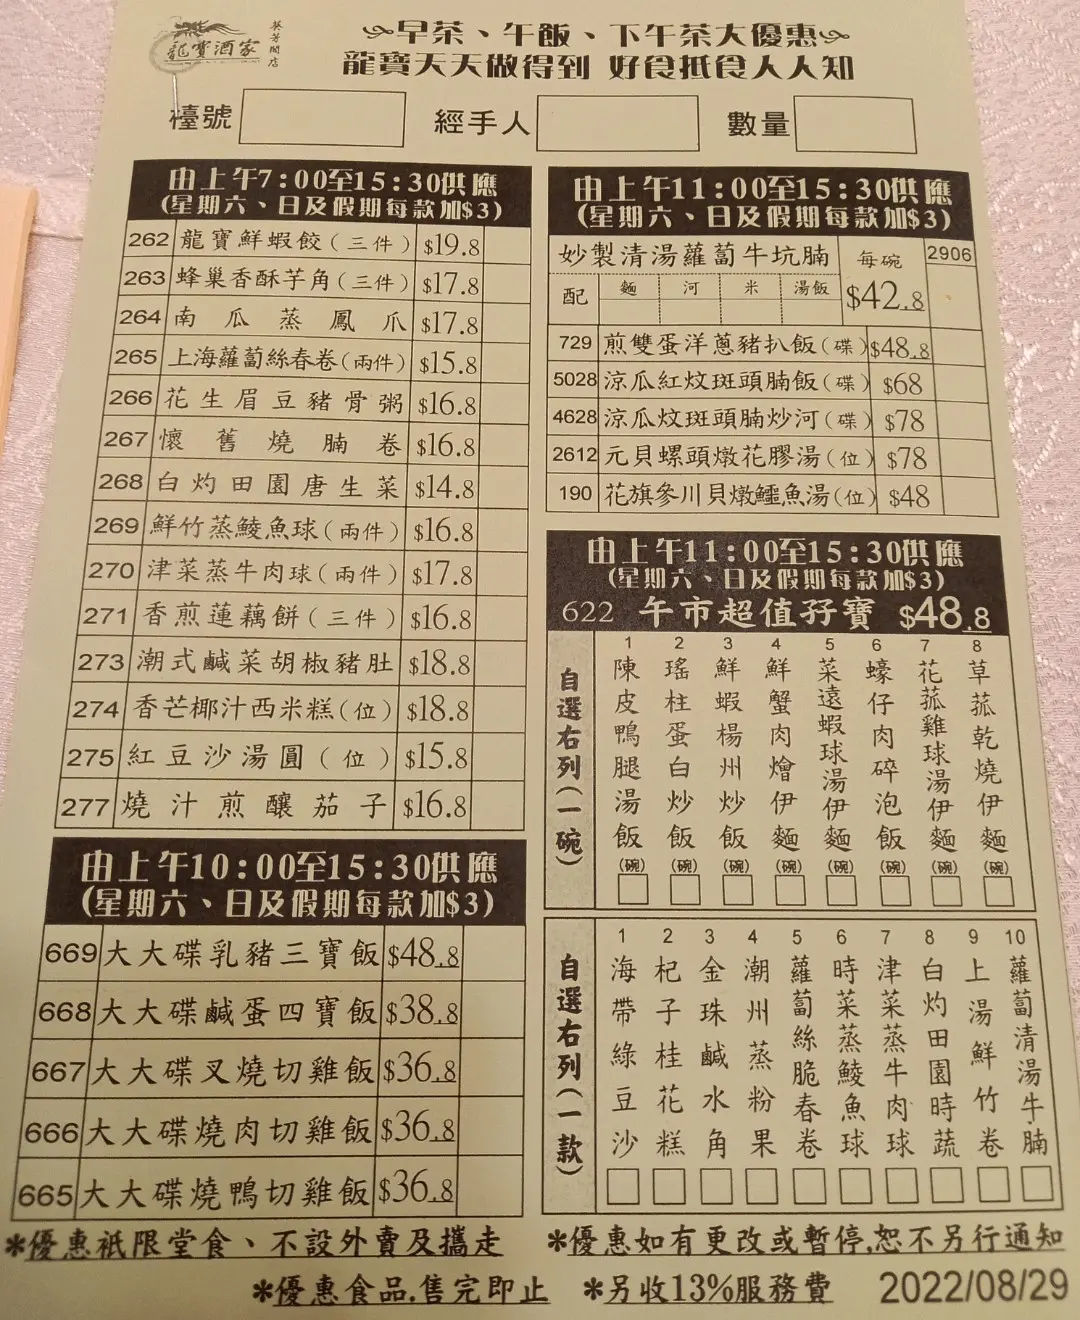 龍寶酒家
葵芳閣店
早茶、午飯、下午茶大優惠
龍寶天天做得到 好食抵食人人知
檯號
經手人
數量
由上午7:00至15:30供應
(星期六、日及假期每款加$3)
262 龍寶鮮蝦餃(三件) $19.8
263 蜂巢香酥芋角(三件) $17.8
264 南瓜蒸鳳爪 $17.8
265 上海蘿蔔絲春卷(兩件) $15.8
266 花生眉豆豬骨粥 $16.8
267 懷舊燒腩卷 $16.8
268 白灼田園唐生菜 $14.8
269 鮮竹蒸鯪魚球(兩件) $16.8
270 津菜蒸牛肉球(兩件) $17.8
271 香煎蓮藕餅(三件) $16.8
273 潮式鹹菜胡椒豬肚 $18.8
274 香芒椰汁西米糕(位) $18.8
275 紅豆沙湯圓(位) $15.8
277 燒汁煎釀茄子 $16.8
由上午10:00至15:30供應
(星期六、日及假期每款加$3)
669 大大碟乳豬三寶飯 $48.8
668 大大碟鹹蛋四寶飯 $38.8
667 大大碟叉燒切雞飯 $36.8
666 大大碟燒肉切雞飯 $36.8
665 大大碟燒鴨切雞飯 $36.8
由上午11:00至15:30供應
(星期六、日及假期每款加$3)
妙製清湯蘿蔔牛坑腩 每碗 $42.8 2906
配 麵 河 米 湯飯
729 煎雙蛋洋蔥豬扒飯(碟) $48.8
5028 涼瓜紅炆斑頭腩飯(碟) $68
4628 涼瓜炆斑頭腩炒河(碟) $78
2612 元貝螺頭燉花膠湯(位) $78
190 花旗參川貝燉鱷魚湯(位) $48
由上午11:00至15:30供應
(星期六、日及假期每款加$3)
622 午市超值孖寶 $48.8
自選右列(一碗)
1 陳皮鴨腿湯飯(碗)
2 瑤柱蛋白炒飯(碗)
3 鮮蝦楊州炒飯(碗)
4 鮮蟹肉燴伊麵(碗)
5 菜遠蝦球湯伊麵(碗)
6 蠔仔肉碎泡飯(碗)
7 花菰雞球湯伊麵(碗)
8 草菰乾燒伊麵(碗)
自選右列(一款)
1 海帶綠豆沙
2 杞子桂花糕
3 金珠鹹水角
4 潮州蒸粉果
5 蘿蔔絲脆春卷
6 時菜蒸鯪魚球
7 津菜蒸牛肉球
8 白灼田園時蔬
9 上湯鮮竹卷
10 蘿蔔清湯牛腩
*優惠祇限堂食、不設外賣及攜走
*優惠如有更改或暫停,恕不另行通知
*優惠食品,售完即止 *另收13%服務費 2022/08/29